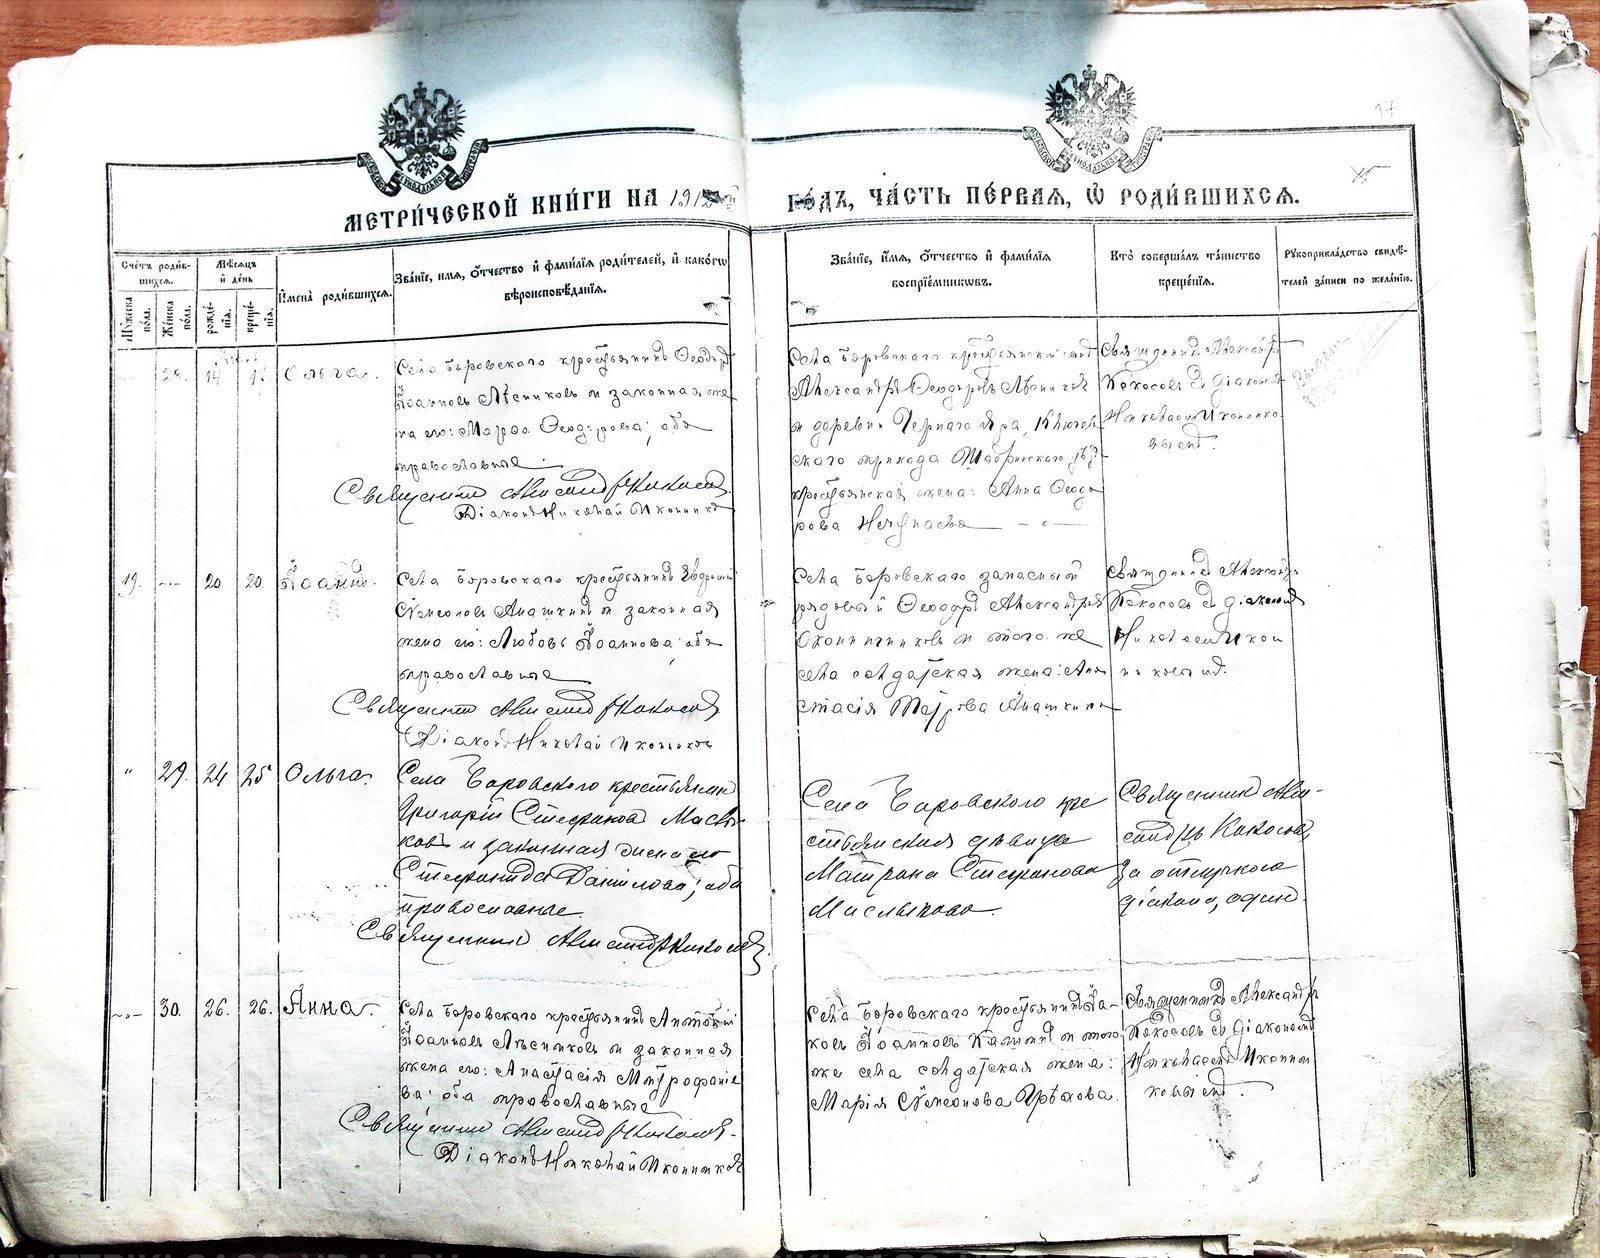 МЕТРИ́ЧЕСКОЙ КНИ́ГИ НА 1912
ГО́ДЪ, ЧА́СТЬ ПЕ́РВАЯ, Ѽ РОДИ́ВШИХСЯ.
17
Сче́тъ роди́вшихся.
Му́жеска по́ла.
Же́нска по́ла.
Мѣ́сяцъ и́ де́нь
рожде́нїя.
креще́нїя.
И҆мена̀ роди́вшихся.
Зва́нїе, и́мя, ѻ҆́тчество и҆ фами́лїя роди́телей, и҆ како́гѡ
вѣроисповѣ́данїя.
Зва́нїе, и҆́мя, ѻ҆́тчество и҆ фами́лїя
воспрїе́мникѡвъ.
Кто̀ соверша́лъ та́инство
креще́нїя.
Рукоприкла́дство свидѣ́телей за́писи по жела́нїю.
28. 14 Ольга.
Села Боровскаго крестьянинъ Ѳеодоръ
Іоанновъ Лѣсниковъ и законная же-
на его: Марѳа Ѳеодорова; оба
православные
Священникъ Александръ Кокосовъ
Діаконъ Николай Иконниковъ
Села Боровскаго крестьянскій сынъ
Александръ Ѳеодоровъ Лѣсниковъ
и деревни Чернаго Яра, Ключев-
скаго прихода
крестьянская жена: Анна Ѳеодо-
рова
Священникъ Александръ
Кокосовъ съ діакономъ
Николаемъ Иконнико-
вымъ.
19. 20 20 Іоаннъ.
Села Боровскаго крестьянинъ
Сѵмеоновъ Анашкинъ и законная
жена его: Любовь Іоаннова; оба
православные
Священникъ Александръ Кокосовъ
Діаконъ Николай Иконниковъ
Села Боровскаго запасный
рядовый Ѳеодоръ Александровъ
и того же
села солдатская жена: Ана-
стасія Петрова Анашкина
Священникъ Александръ
Кокосовъ съ діакономъ
Николаемъ Икон-
никовымъ.
" 29. 24 25 Ольга.
Села Боровскаго крестьянинъ
Григорій Стефановъ Маслы-
ковъ и законная жена его
Стефанида Данилова; оба
православные.
Священникъ Александръ Кокосовъ
Села Боровскаго кре-
стьянская дѣвица
Матрона Стефанова
Маслыкова.
Священникъ Алек-
сандръ Кокосовъ,
за отлучкою
діакона, одинъ.
30. 26. 26. Анна.
Села Боровскаго крестьянинъ Антоній
Іоанновъ Лѣсниковъ и законная
жена его: Анастасія Митрофаніе-
ва; оба православные
Священникъ Александръ Кокосовъ.
Діаконъ Николай Иконниковъ
Села Боровскаго крестьянинъ Іа-
ковъ Іоанновъ Кашинъ и того
же села солдатская жена:
Марія Сѵмеонова Грѣхова.
Священникъ Александръ
Кокосовъ съ діакономъ
Николаемъ Иконни-
ковымъ.